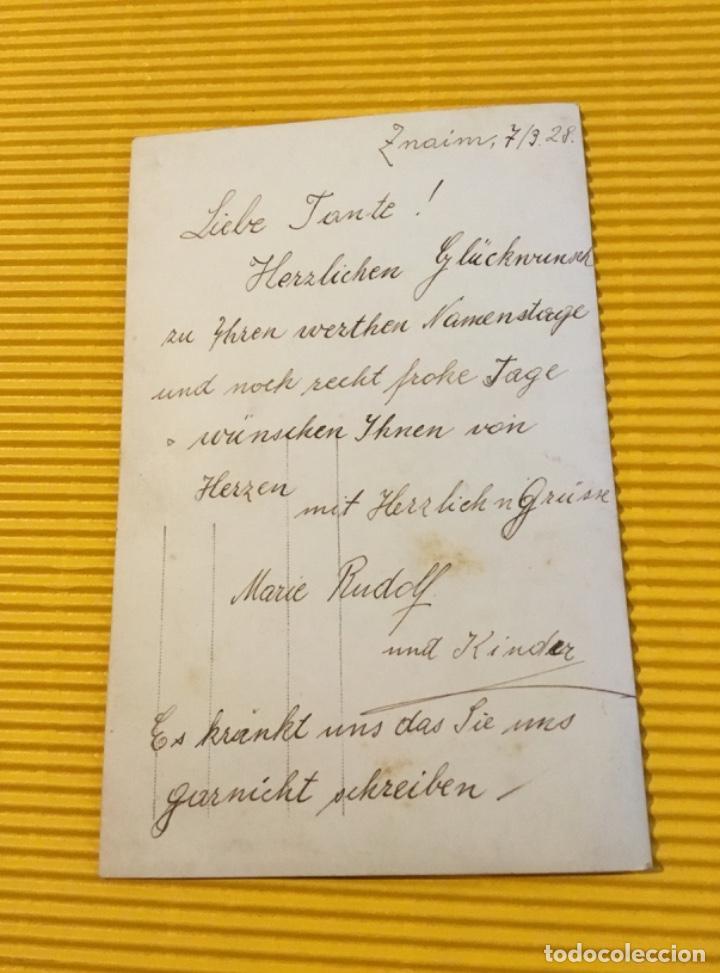 Znaim, 7/3.28.
Liebe Tante!
Herzlichen Glückwunsch
zu Ihren werthen Namenstage
und noch recht frohe Tage
wünschen Ihnen von
Herzen
mit Herzlich'n Grüsse
Marie Rudolf
und Kinder
Es kränkt uns das Sie uns
garnicht schreiben –
todocoleccion